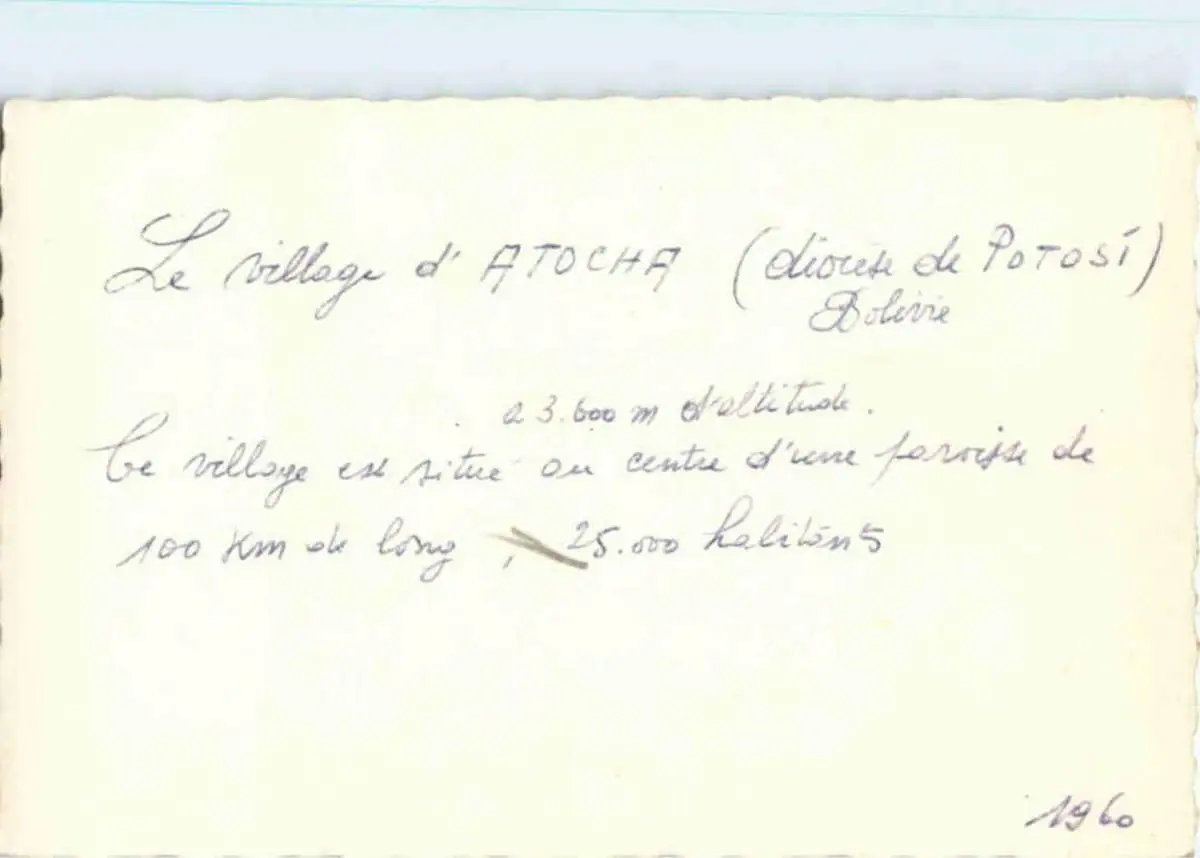 Le village d'ATOCHA (diocèse de POTOSÍ)
Bolivie
a 3.600 m d'altitude.
Ce village est situé au centre d'une paroisse de
100 Km de long, 25.000 habitants
1960